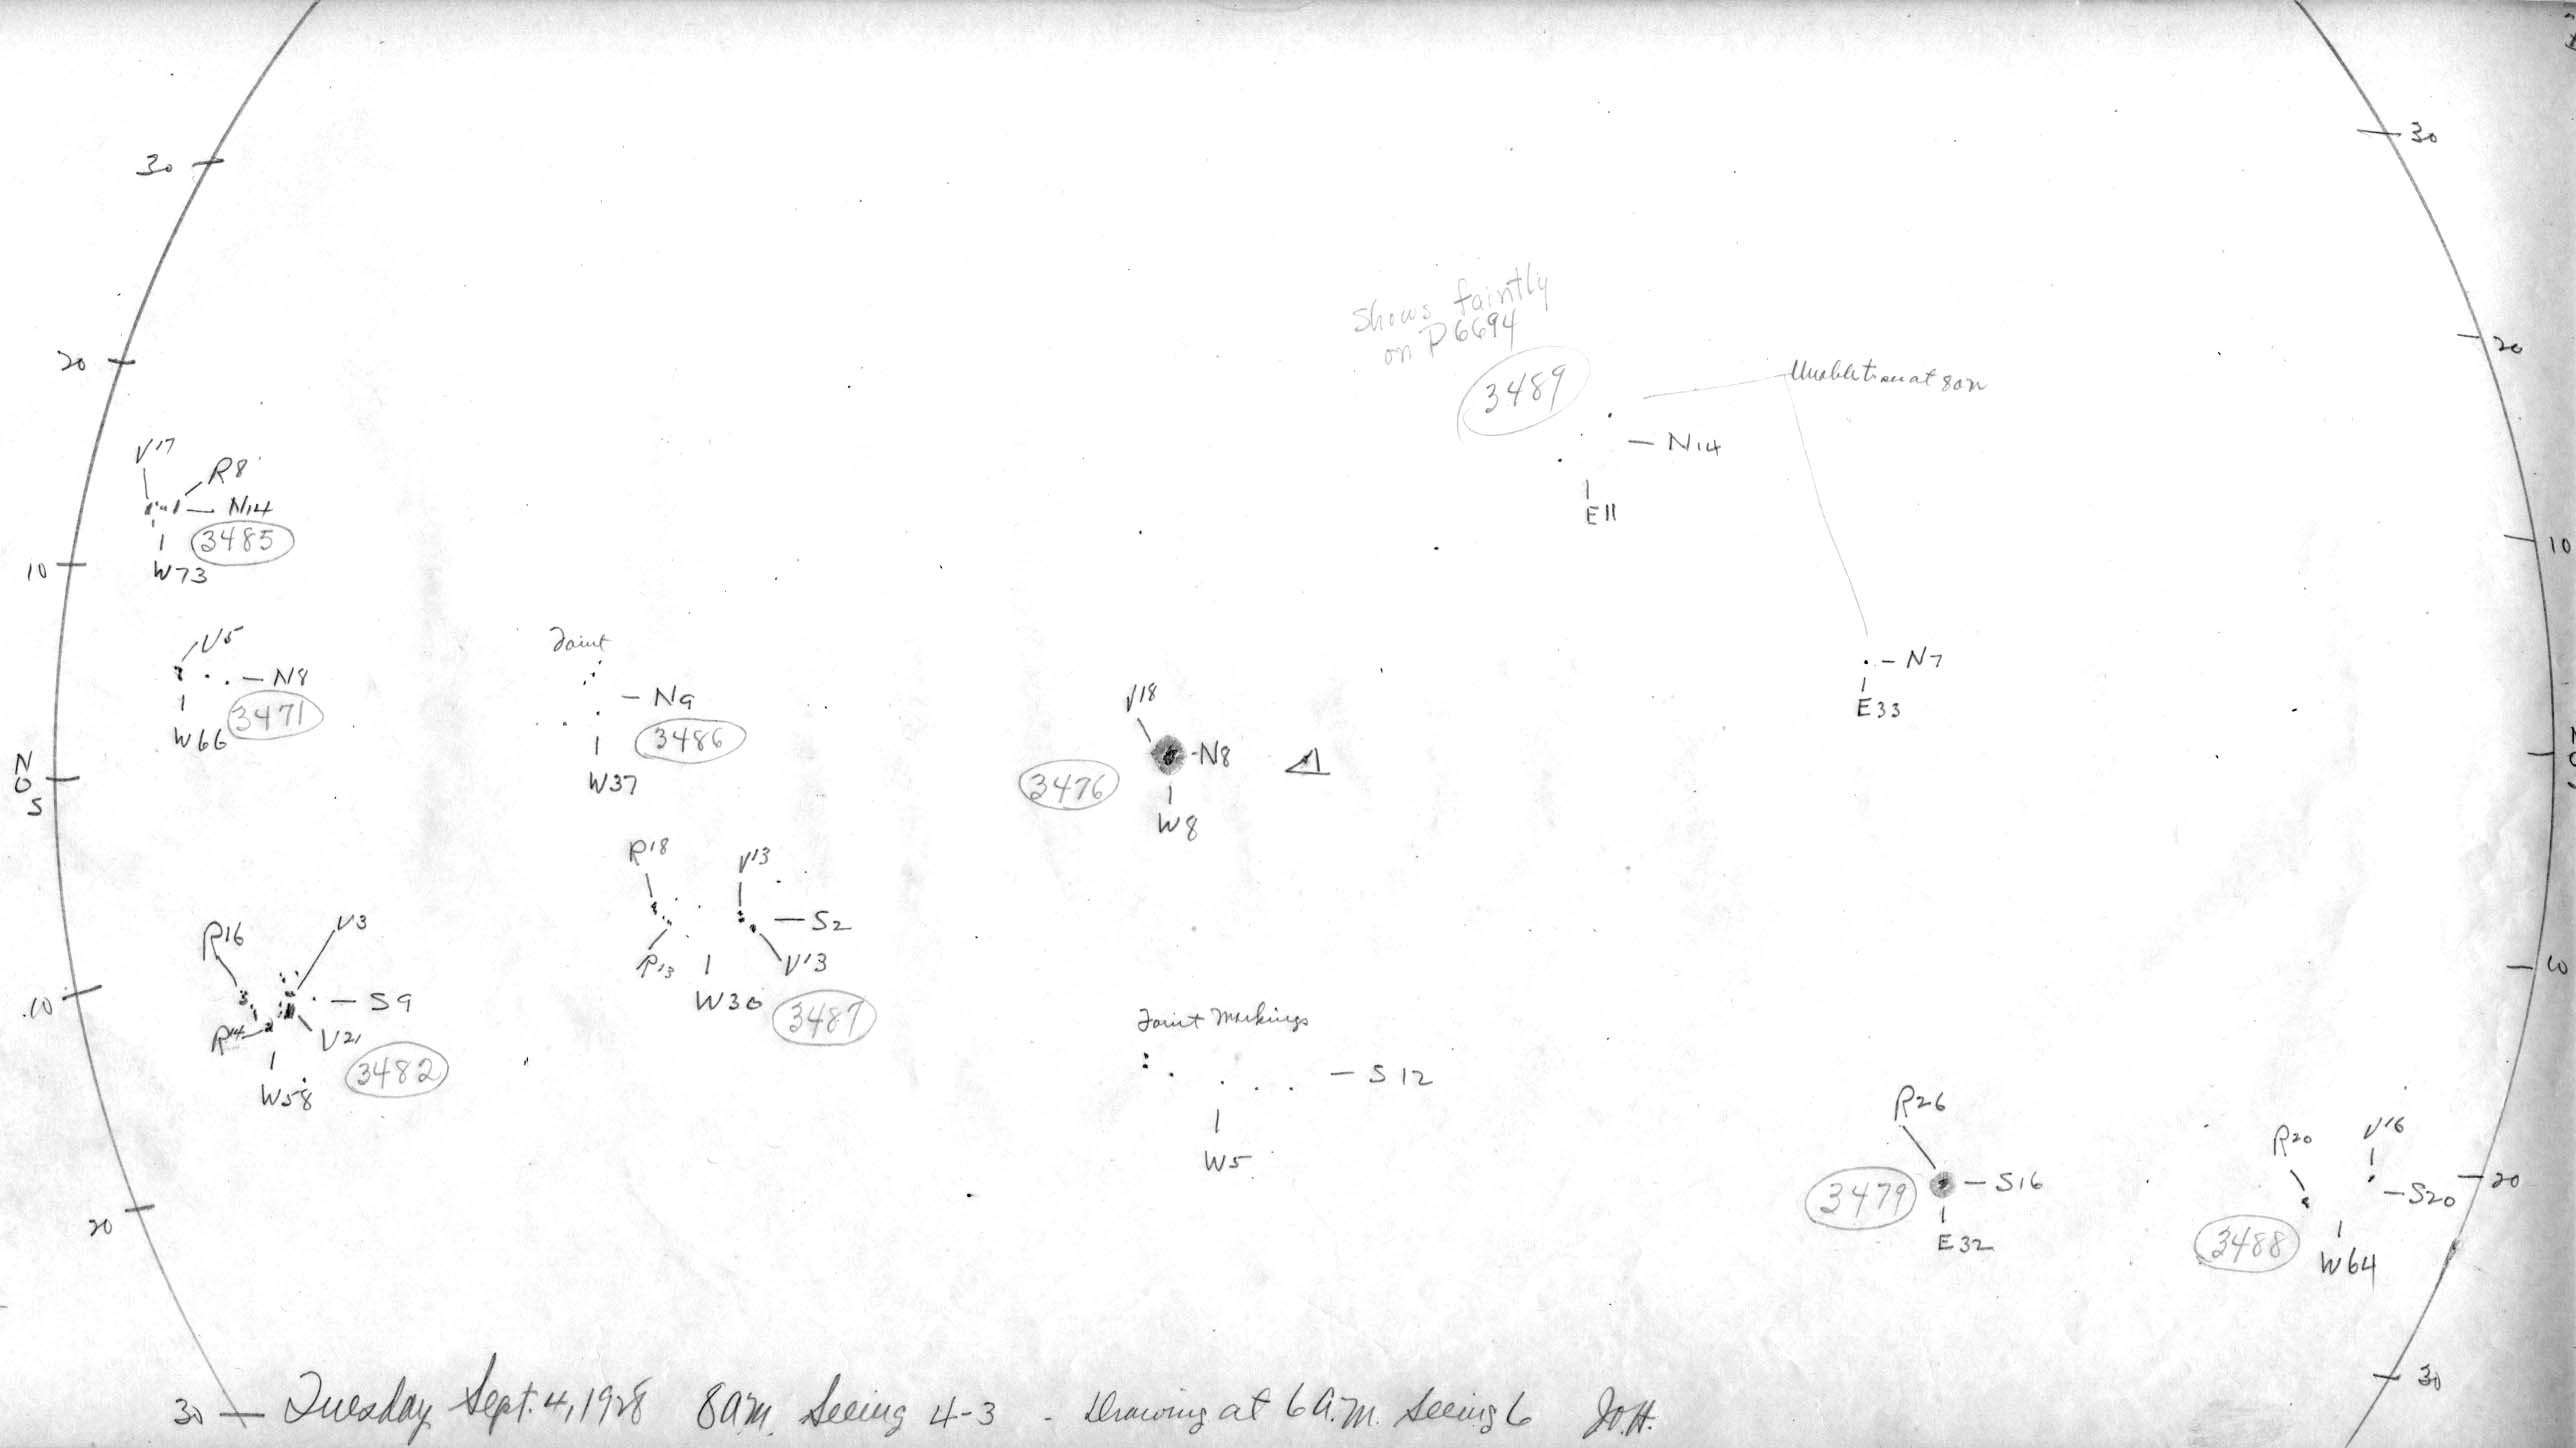 30
30
20
20
Shows faintly
on P6694
3489
N14
E11
V17
R8
N14
3485
W73
10
10
V5
N8
3471
W66
Faint
N9
3486
W37
N7
E33
V18
N8
3476
W8
N
0
S
R18
V13
S2
R13
V13
W30
3487
R16
V3
S9
R14
V21
3482
W58
10
10
Faint Markings
S12
W5
R26
3479
S16
E32
R20
V16
S20
3488
W64
20
20
30
30
Tuesday Sept. 4, 1928 8 a.m. Seeing 4-3 - Drawing at 6 A.M. Seeing 6